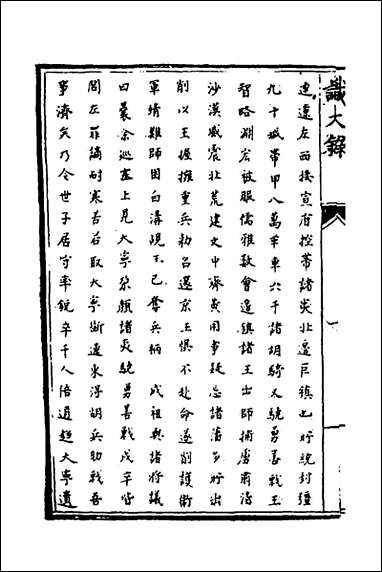 識大錄
連遼左西接宣府控帶諸夷北邊巨鎮也所統封疆
九十城帶甲八萬革車六千諸胡騎尤驍勇善戰王
智略淵宏被服儒雅數會邊鎮諸王出師捕虜肅清
沙漠威震北荒建文中齊黃用事疑忌諸藩多所出
削以王握擁重兵勅召還京王懼不赴命遂削護衛
軍靖難師困白溝覘王已奪兵柄 成祖與諸將議
曰曩余巡塞上見大寧朶顏諸夷驍勇善戰戍卒皆
閭左罪謫耐寒苦若取大寧斷遼東得胡兵助戰吾
事濟矣乃令世子居守率銳卒千人倍道趨大寧遺